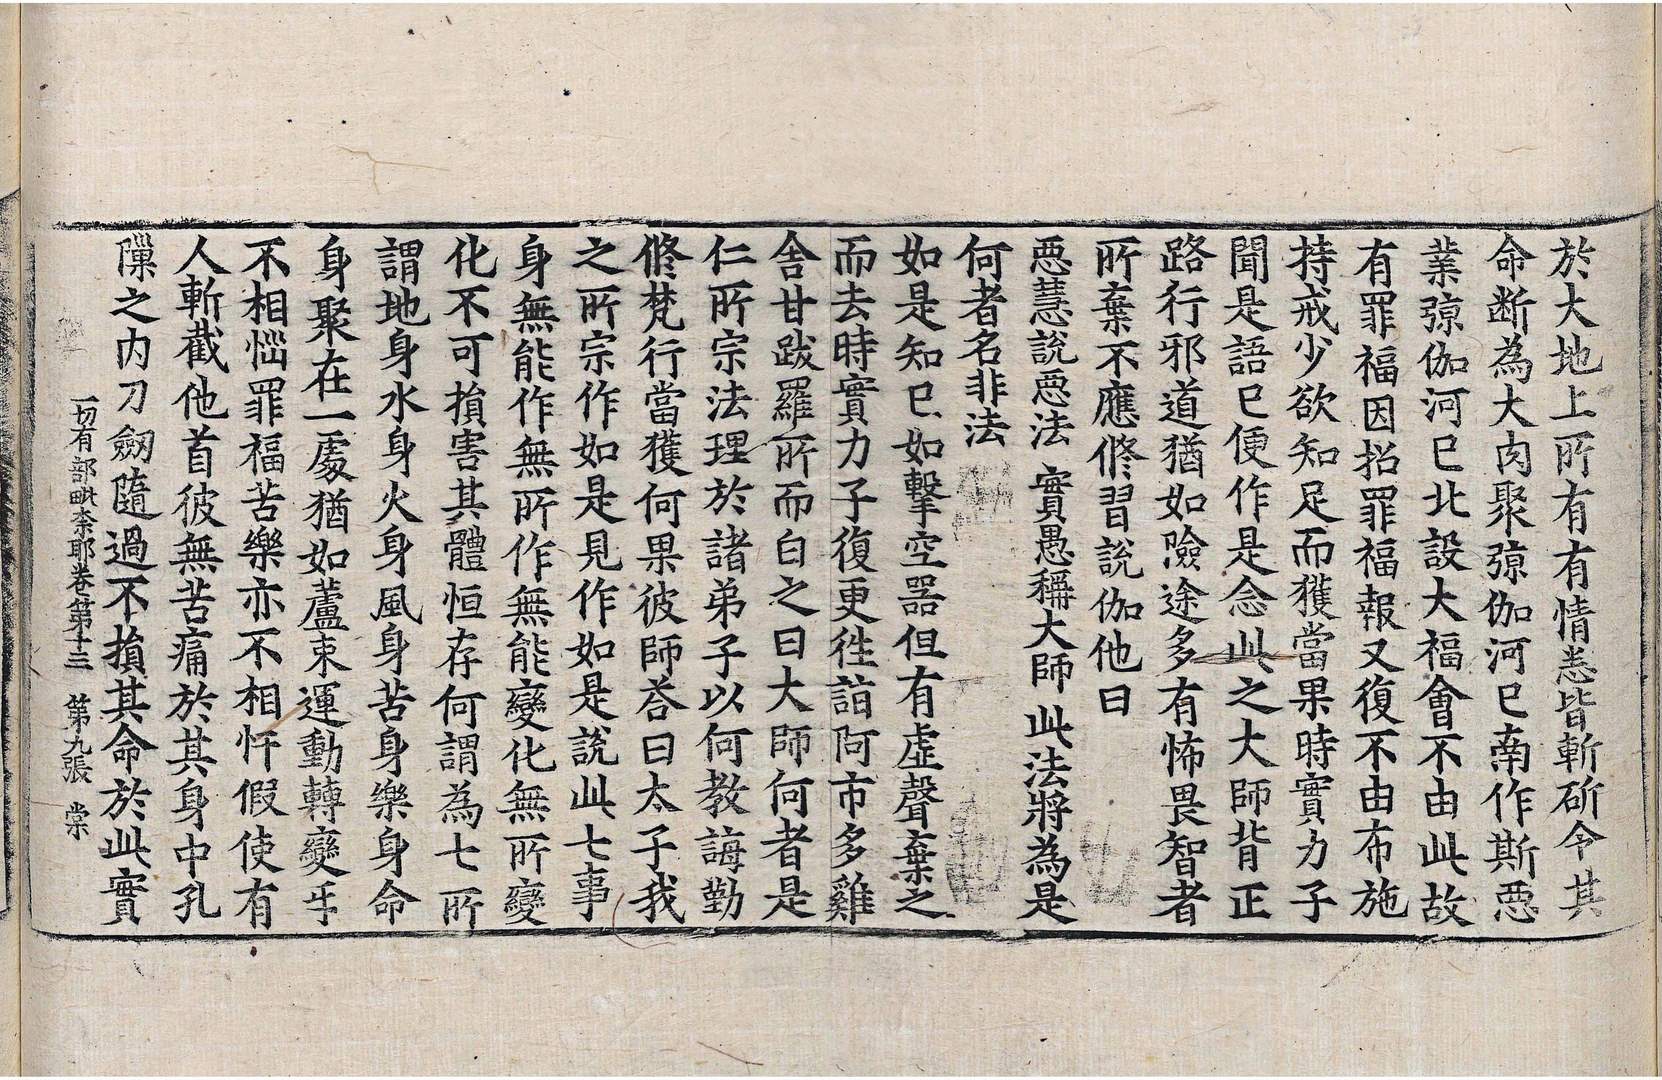 於大地上所有有情恙皆斬斫令其
命断為大肉聚殑伽河已南作斯惡
業殑伽河已北設大福會不由此故
有罪福因招罪福報又復不由布施
持戒少欲知足而獲當果時實力子
聞是語已便作是念此之大師背正
路行邪道猶如險途多有怖畏智者
所棄不應修習說伽他曰
惡慧說惡法 實愚稱大師 此法將為是
何者名非法
如是知已如擊空器但有虛聲棄之
而去時實力子復更徃詣阿市多雞
舍甘跋羅所而白之曰大師何者是
仁所宗法理於諸弟子以何教誨勤
修梵行當獲何果彼師荅曰太子我
之所宗作如是見作如是說此七事
身無能作無所作無能變化無所變
化不可損害其體恒存何謂為七所
謂地身水身火身風身苦身樂身命
身聚在一處猶如蘆束運動轉變互
不相惱罪福苦樂亦不相忓假使有
人斬截他首彼無苦痛於其身中孔
隟之內刀劒隨過不損其命於此實
一切有部毗柰耶卷第十三 第九張 棠